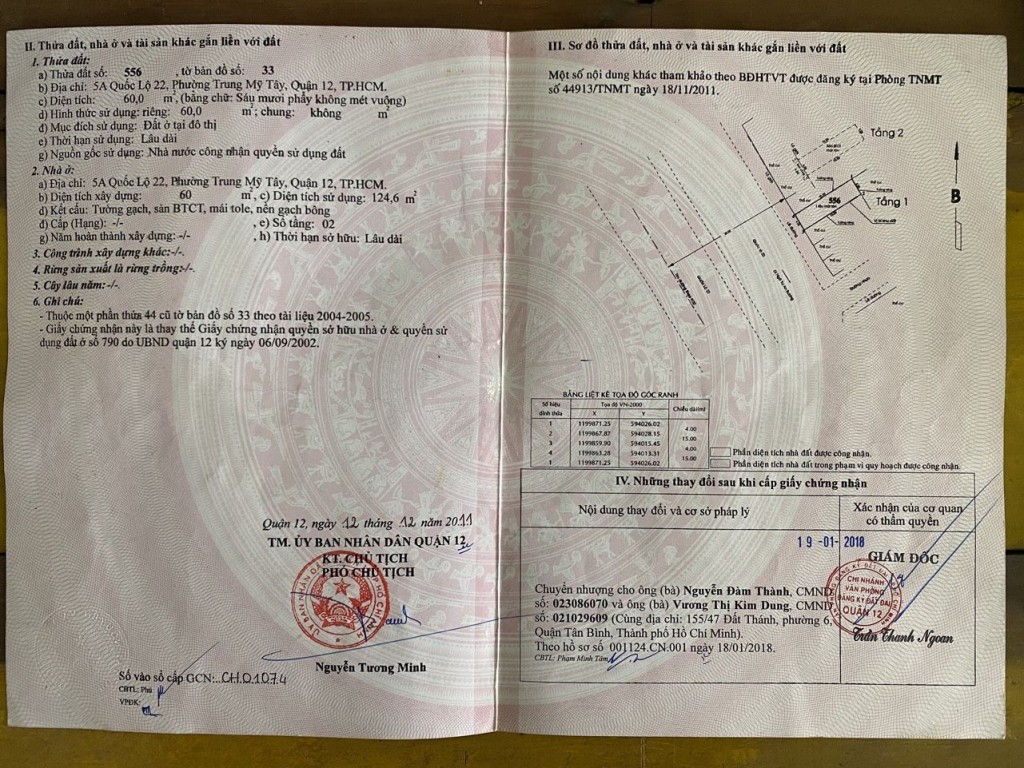 II. Thửa đất, nhà ở và tài sản khác gắn liền với đất
1. Thửa đất:
a) Thửa đất số: 556 , tờ bản đồ số: 33
b) Địa chỉ: 5A Quốc Lộ 22, Phường Trung Mỹ Tây, Quận 12, TP.HCM.
c) Diện tích: 60,0 m², (bằng chữ: Sáu mươi phẩy không mét vuông)
d) Hình thức sử dụng: riêng: 60,0 m²; chung: không m²
đ) Mục đích sử dụng: Đất ở tại đô thị
e) Thời hạn sử dụng: Lâu dài
g) Nguồn gốc sử dụng: Nhà nước công nhận quyền sử dụng đất
2. Nhà ở:
a) Địa chỉ: 5A Quốc Lộ 22, Phường Trung Mỹ Tây, Quận 12, TP.HCM.
b) Diện tích xây dựng: 60 m², c) Diện tích sử dụng: 124,6 m²
d) Kết cấu: Tường gạch, sàn BTCT, mái tole, nền gạch bông
đ) Cấp (Hạng): -/- , e) Số tầng: 02
g) Năm hoàn thành xây dựng: -/- , h) Thời hạn sở hữu: Lâu dài
3. Công trình xây dựng khác:-/-.
4. Rừng sản xuất là rừng trồng:-/-.
5. Cây lâu năm: -/-.
6. Ghi chú:
- Thuộc một phần thửa 44 cũ tờ bản đồ số 33 theo tài liệu 2004-2005.
- Giấy chứng nhận này là thay thế Giấy chứng nhận quyền sở hữu nhà ở & quyền sử
dụng đất ở số 790 do UBND quận 12 ký ngày 06/09/2002.
Quận 12, ngày 12 tháng 12 năm 2011
TM. ỦY BAN NHÂN DÂN QUẬN 12
KT. CHỦ TỊCH
PHÓ CHỦ TỊCH
Nguyễn Tương Minh
Số vào sổ cấp GCN: CH01074
CBTL: Phú
VPĐK:
III. Sơ đồ thửa đất, nhà ở và tài sản khác gắn liền với đất
Một số nội dung khác tham khảo theo BĐHTVT được đăng ký tại Phòng TNMT
số 44913/TNMT ngày 18/11/2011.
Tầng 2
556
Tầng 1
B
BẢNG LIỆT KÊ TỌA ĐỘ GÓC RANH
Số hiệu đỉnh thửa Tọa độ VN-2000 Chiều dài(m)
X Y
1 1199871.25 594026.02
4.00
2 1199867.87 594028.15
15.00
3 1199859.90 594015.45
4.00
4 1199863.28 594013.31
15.00
1 1199871.25 594026.02
Phần diện tích nhà đất được công nhận.
Phần diện tích nhà đất trong phạm vi quy hoạch được công nhận.
IV. Những thay đổi sau khi cấp giấy chứng nhận
Nội dung thay đổi và cơ sở pháp lý
Xác nhận của cơ quan
có thẩm quyền
19 -01- 2018
GIÁM ĐỐC
Chuyển nhượng cho ông (bà) Nguyễn Đàm Thành, CMND
số: 023086070 và ông (bà) Vương Thị Kim Dung, CMND
số: 021029609 (Cùng địa chỉ: 155/47 Đất Thánh, phường 6,
Quận Tân Bình, Thành phố Hồ Chí Minh).
Theo hồ sơ số 001124.CN.001 ngày 18/01/2018.
CBTL: Phạm Minh Tâm
CHI NHÁNH
VĂN PHÒNG
ĐĂNG KÝ ĐẤT ĐAI
QUẬN 12
Trần Thanh Ngoan